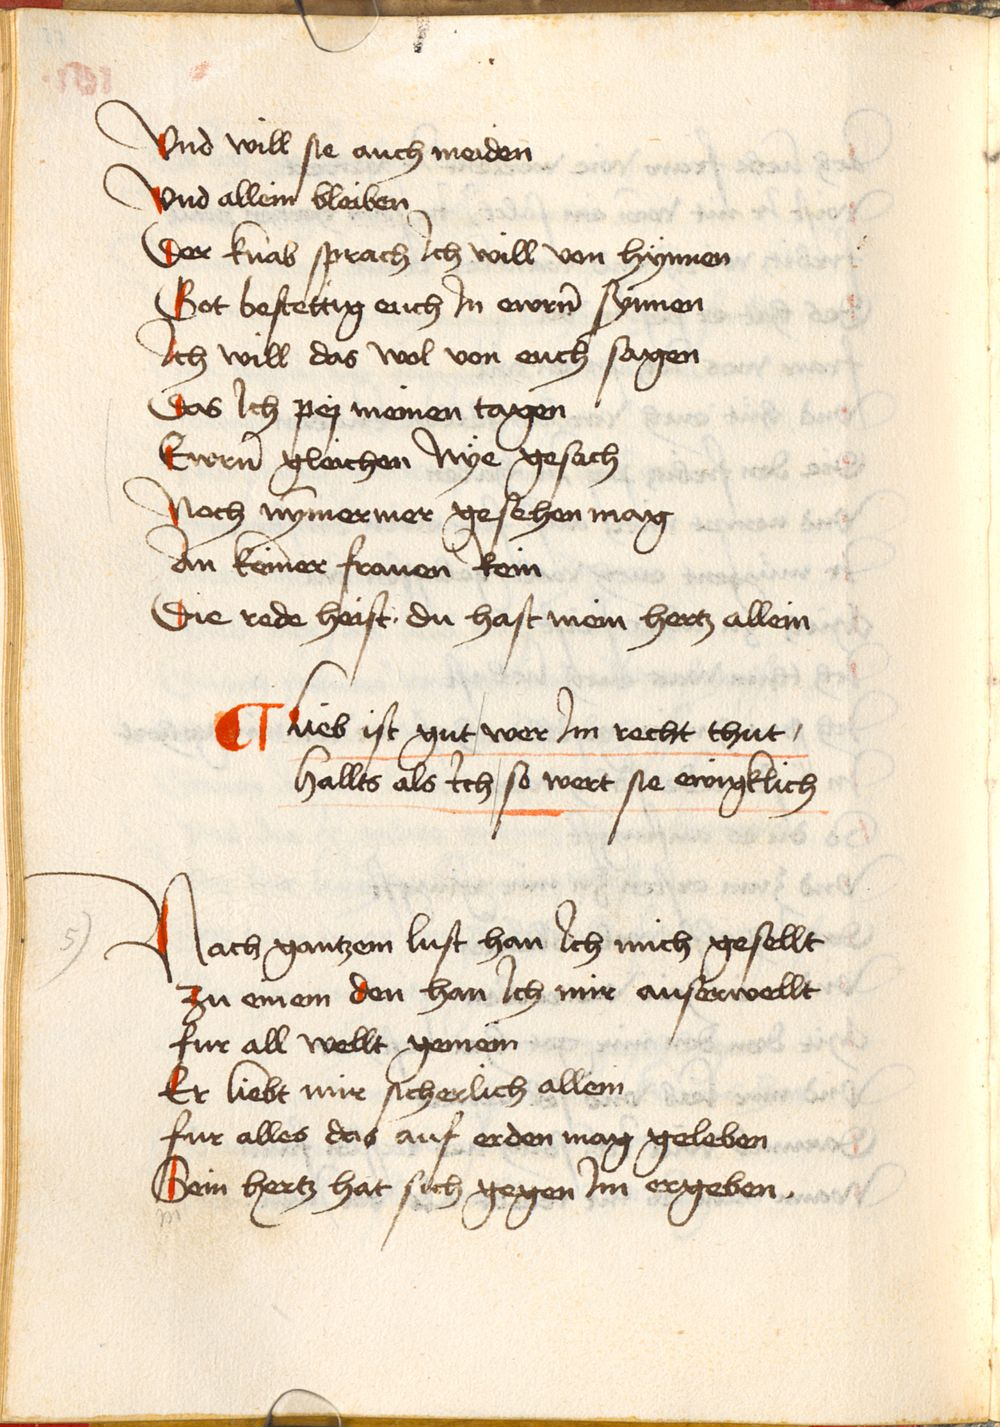 Vnd will sie auch meiden
Vnd allein bleiben
Der knab sprach Ich will von hÿnnen
Got bestettig euch In ewrn̄ sÿnnen
Ich will das wol von euch sagen
Das Ich pej meinen tagen
Ewrn̄ gleichen Nÿe gesach
Noch nȳmermer gesehen mag
An keiner frauen Rein
Die rede heist. du hast mein hertz allein
¶ Lieb ist gut / wer Im recht thut /
Hallts als Ich / so wert sie ewigklich
5)
Nach gantzem lust han Ich mich gesellt
Zu einem den han Ich mir auserwellt
fur all wellt gemein
Er liebt mir sicherlich allein
fur alles das auf erden mag geleben
Sein hertz hat sich gegen Im ergeben.
m